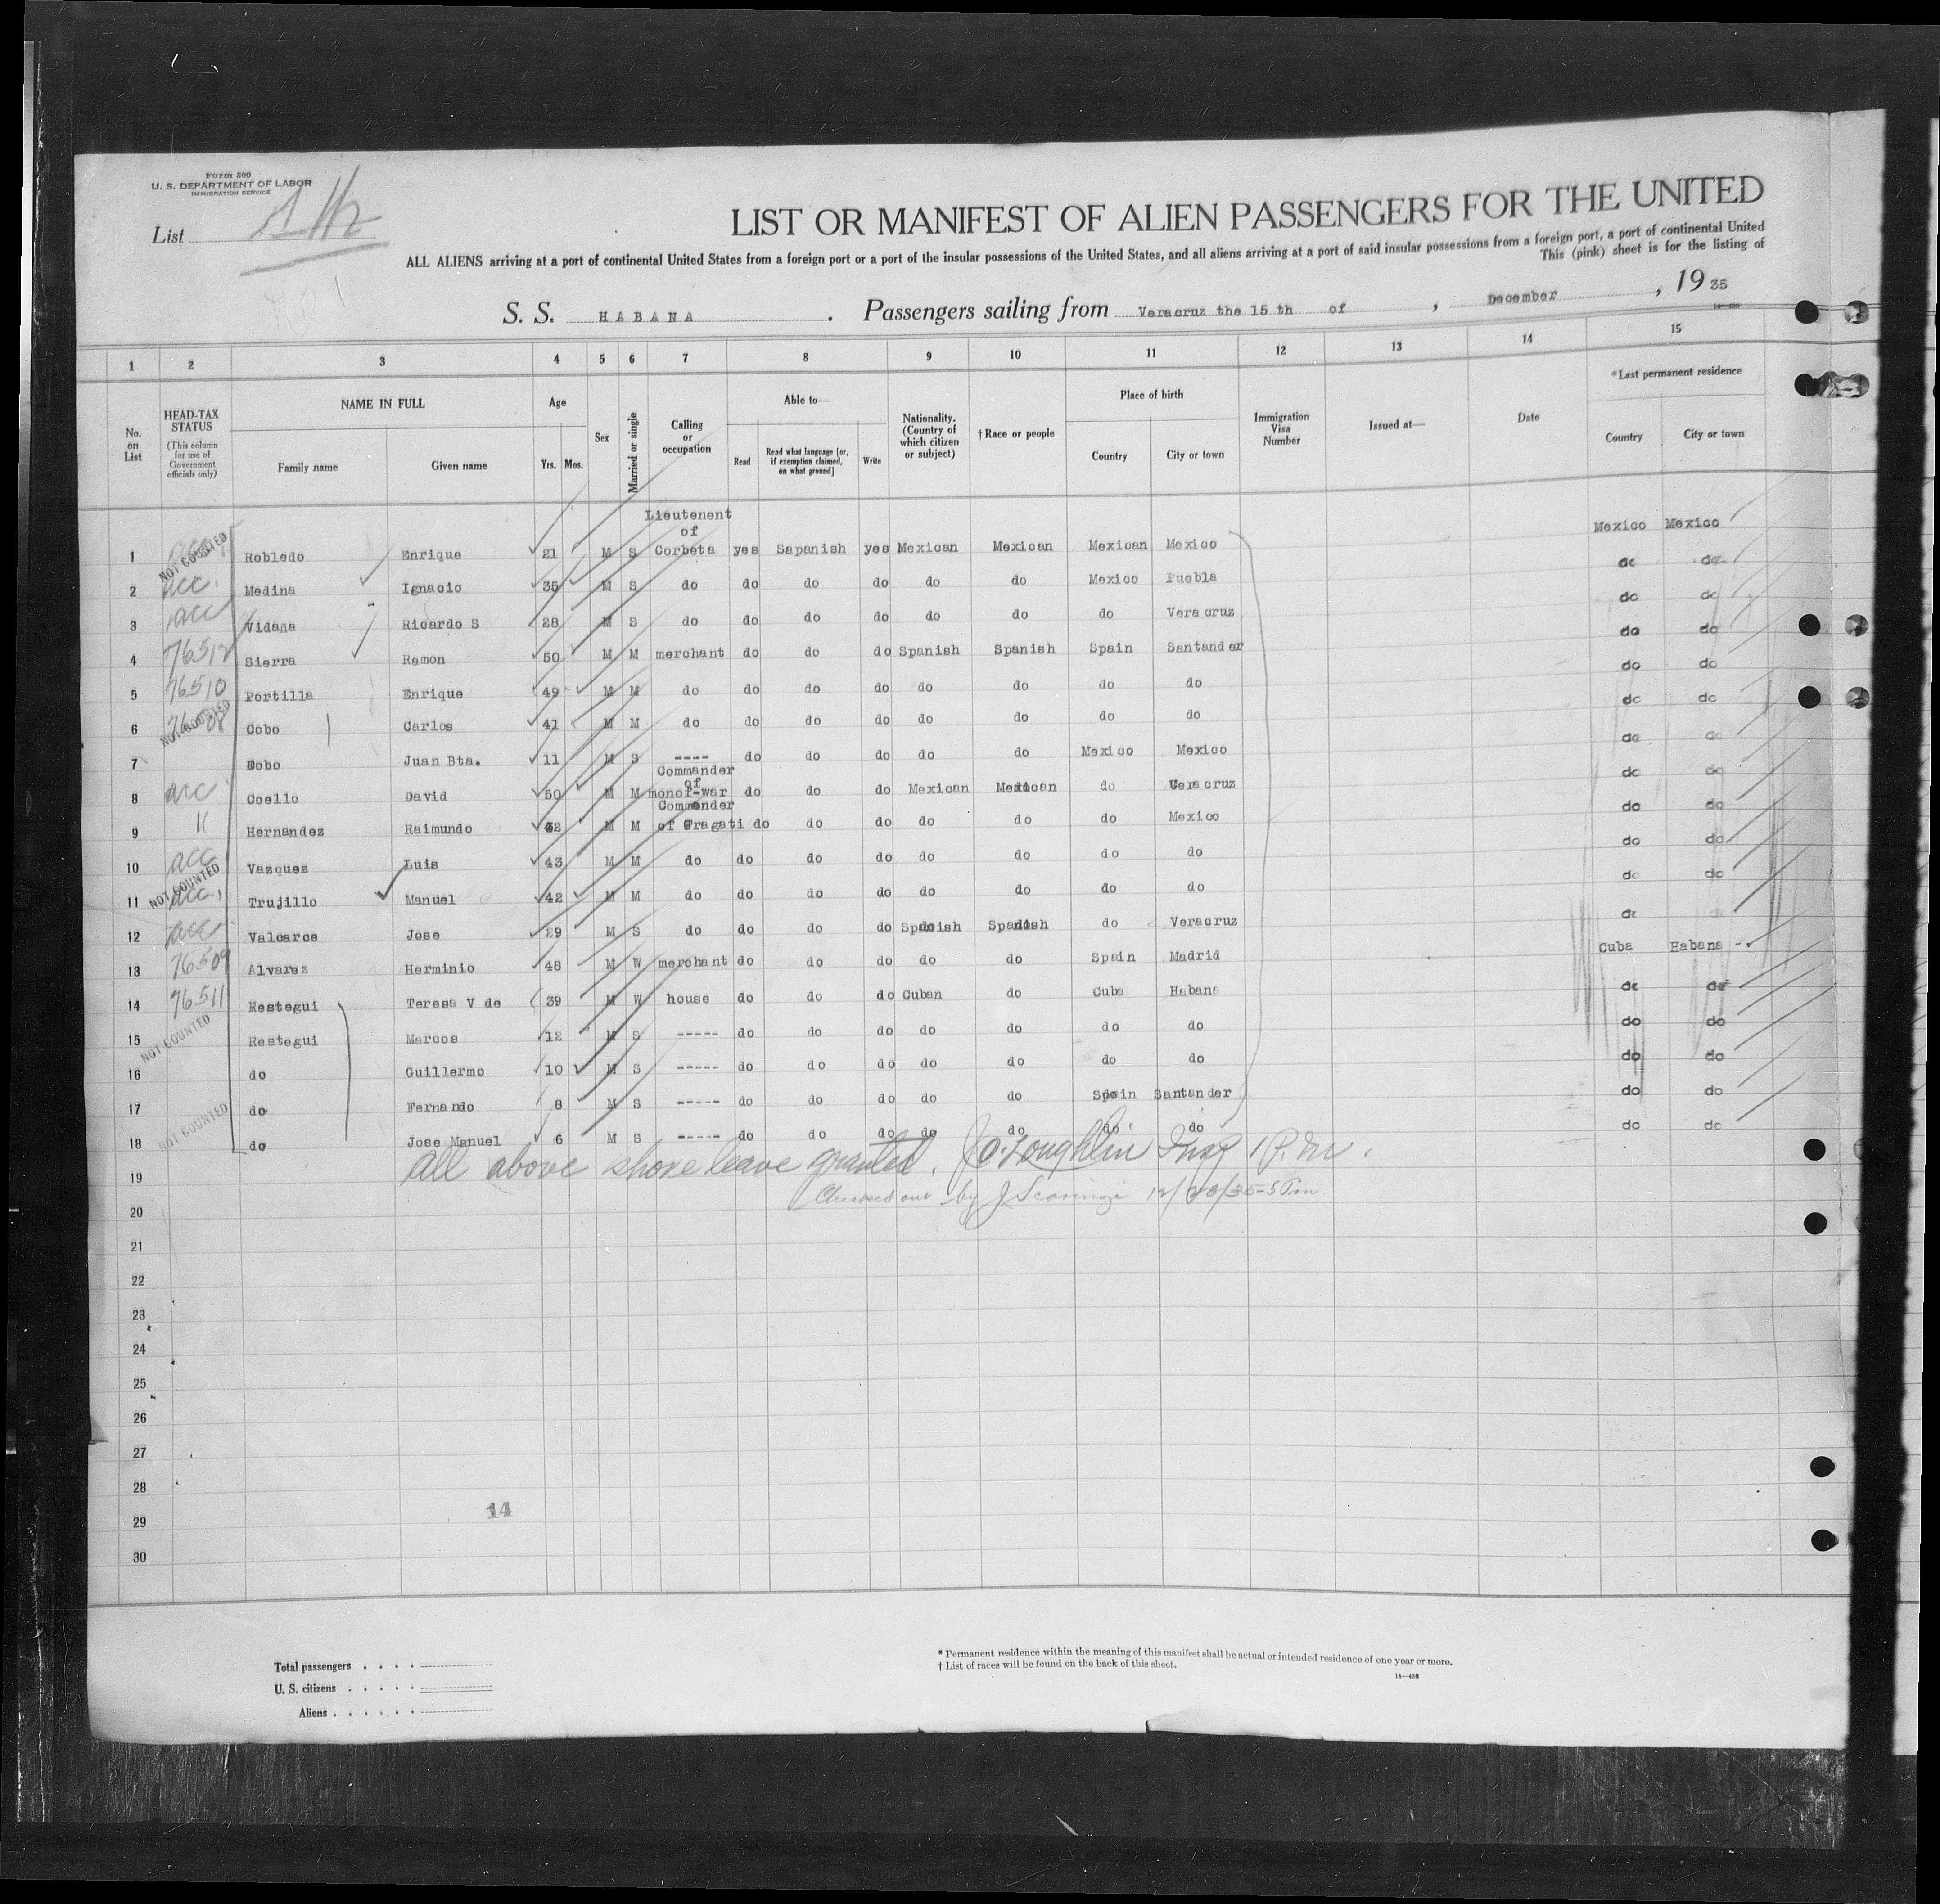 Form 500
U. S. DEPARTMENT OF LABOR
IMMIGRATION SERVICE
List
LIST OR MANIFEST OF ALIEN PASSENGERS FOR THE UNITED
ALL ALIENS arriving at a port of continental United States from a foreign port or a port of the insular possessions of the United States, and all aliens arriving at a port of said insular possessions from a foreign port, a port of continental United
This (pink) sheet is for the listing of
S. S. HABANA . Passengers sailing from Veracruz the 15 th of , December , 19 35
1 2 3 4 5 6 7 8 9 10 11 12 13 14 15
No. on List HEAD-TAX STATUS (This column for use of Government officials only) NAME IN FULL Family name Given name Age Yrs. Mos. Sex Married or single Calling or occupation Able to— Read Read what language [or, if exemption claimed, on what ground] Write Nationality. (Country of which citizen or subject) † Race or people Place of birth Country City or town Immigration Visa Number Issued at— Date *Last permanent residence Country City or town
1 NOT COUNTED Robledo Enrique 21 M S Lieutenent of Corbeta yes Sapanish yes Mexican Mexican Mexican Mexico Mexico Mexico
2 acc. Medina Ignacio 35 M S do do do do do do Mexico Puebla do do
3 acc Vidana Ricardo S 28 M S do do do do do do do Vera cruz do do
4 76512 Sierra Ramon 50 M M merchant do do do Spanish Spanish Spain Santander do do
5 76510 Portilla Enrique 49 M M do do do do do do do do do do
6 NOT COUNTED Cobo Carlos 41 M M do do do do do do do do do do
7 Cobo Juan Bta. 11 M S ---- do do do do do Mexico Mexico do do
8 acc Coello David 50 M M Commander of monof-war do do do Mexican Mexican do Veracruz do do
9 11 Hernandez Raimundo 32 M M Commender of Fragati do do do do do do Mexico do do
10 acc Vazquez Luis 43 M M do do do do do do do do do do
11 NOT COUNTED acc, Trujillo Manuel 42 M M do do do do do do do do do do
12 acc Valcarce Jose 29 M S do do do do Spanish Spanish do Veracruz do do
13 76509 Alvarez Herminio 48 M W merchant do do do do do Spain Madrid Cuba Habana
14 76511 Restegui Teresa V de 39 M W house do do do Cuban do Cuba Habana do do
15 NOT COUNTED Restegui Marcos 12 M S ----- do do do do do do do do do
16 do Guillermo 10 M S ----- do do do do do do do do do
17 do Fernando 8 M S ----- do do do do do Spain Santander do do
18 NOT COUNTED do Jose Manuel 6 M S ----- do do do do do do do do do
19 All above shore leave granted. J O'Loughlin Insp 1 P.M.
20 Checked out by J Scaringi 12/23/35-5 Pm
21
22
23
24
25
26
27
28
29 14
30
Total passengers . . . .
U. S. citizens . . . . .
Aliens . . . . . .
* Permanent residence within the meaning of this manifest shall be actual or intended residence of one year or more.
† List of races will be found on the back of this sheet.